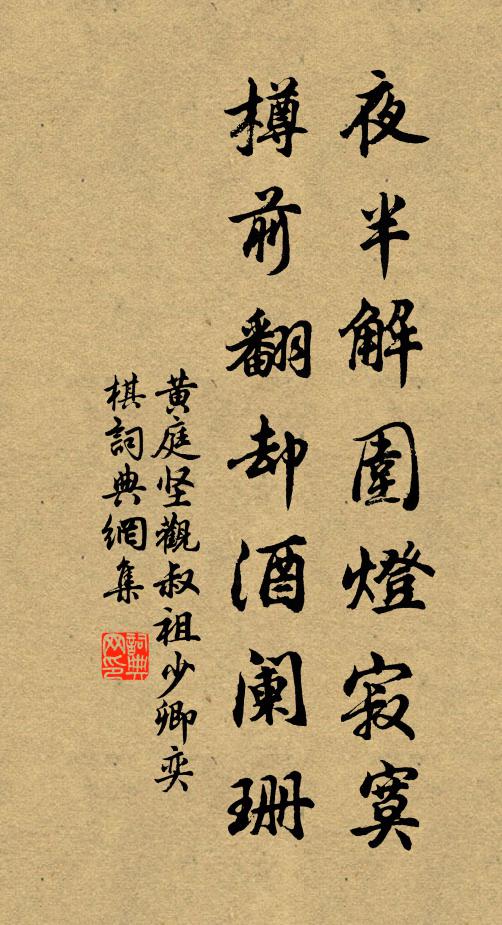 夜半解圍燈寂寞
樽前翻却酒阑珊
黄庭坚觀叔祖少卿奕
棋詞典網集
詞典
网印